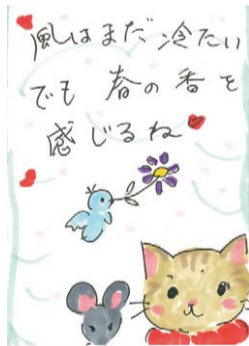 風はまだ冷たい
でも春の香を
感じるね